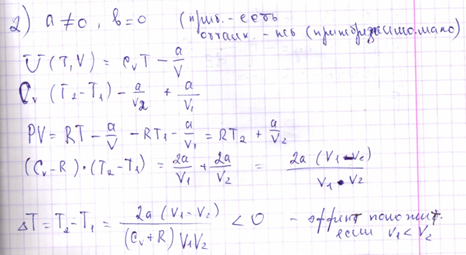 2) a ≠ 0, b = 0 (прит. - есть
отталк - нет (пренебрежимо мало)
U (T, V) = CvT - a/V
Cv (T2 - T1) - a/V2 + a/V1
PV = RT - a/V - RT1 - a/V1 = RT2 + a/V2
(Cv - R) · (T2 - T1) = 2a/V1 + 2a/V2 = 2a (V1 - V2) / V1 · V2
ΔT = T2 - T1 = 2a (V1 - V2) / (Cv + R) V1V2 < 0 - эффект полож.
если V1 < V2